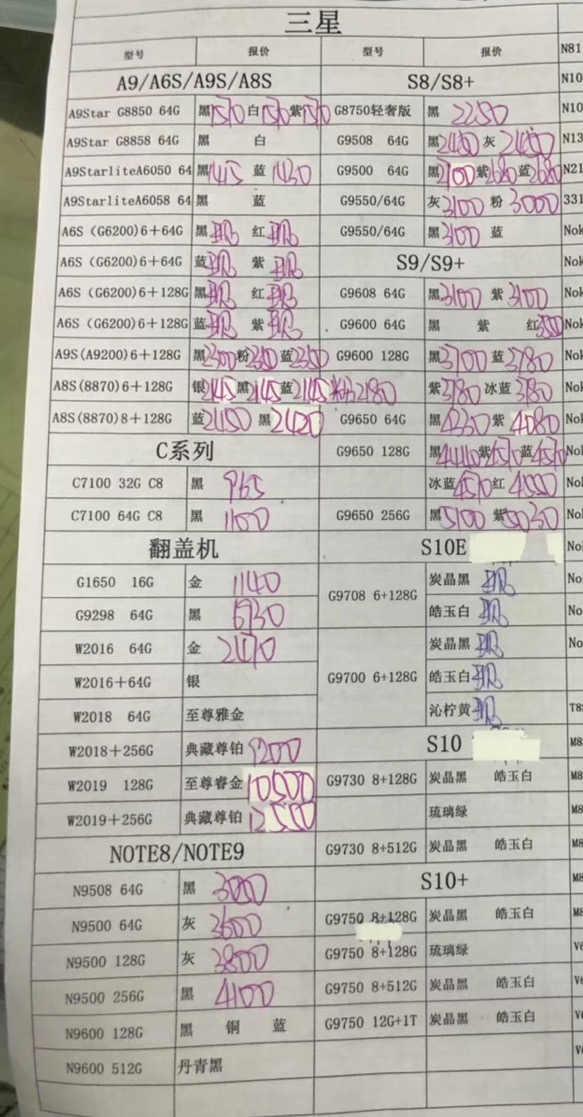 三星
型号 报价 型号 报价 N81
A9/A6S/A9S/A8S S8/S8+ N10
A9Star G8850 64G 黑 白 紫 G8750轻奢版 黑 2250 N10
A9Star G8858 64G 黑 白 G9508 64G 黑 灰 N13
A9StarliteA6050 64 黑 蓝 1430 G9500 64G 黑 紫 蓝 N21
A9StarliteA6058 64 黑 蓝 G9550/64G 灰3100 粉3000 331
A6S (G6200)6+64G 黑 红 G9550/64G 黑3100 蓝 Nok
A6S (G6200)6+64G 蓝 紫 S9/S9+ Nok
A6S (G6200)6+128G 黑 红 G9608 64G 黑3100 紫3100 Nok
A6S (G6200)6+128G 蓝 紫 G9600 64G 黑 紫 红 Nok
A9S(A9200)6+128G 黑2300 粉 蓝 G9600 128G 黑3700 蓝3780 Nok
A8S(8870)6+128G 银2145 黑2145 蓝2145 粉2180 紫3780 冰蓝3780 Nok
A8S(8870)8+128G 蓝2450 黑2420 G9650 64G 黑 紫4080 Nok
C系列 G9650 128G 黑4440 紫4570 蓝4570 Nol
C7100 32G C8 黑 965 冰蓝4570 红 Nol
C7100 64G C8 黑 1100 G9650 256G 黑5100 紫5030 Nol
翻盖机 S10E No
G1650 16G 金 1140 G9708 6+128G 炭晶黑 No
G9298 64G 黑 6930 皓玉白 No
W2016 64G 金 2470 G9700 6+128G 炭晶黑 No
W2016+64G 银 皓玉白
W2018 64G 至尊雅金 沁柠黄 T8
W2018+256G 典藏尊铂 9200 S10 M8
W2019 128G 至尊睿金 10500 G9730 8+128G 炭晶黑 皓玉白 M8
W2019+256G 典藏尊铂 12500 琉璃绿 M8
NOTE8/NOTE9 G9730 8+512G 炭晶黑 皓玉白 M8
N9508 64G 黑 3000 S10+ M8
N9500 64G 灰 3600 G9750 8+128G 炭晶黑 皓玉白 M8
N9500 128G 灰 3800 G9750 8+128G 琉璃绿 V6
N9500 256G 黑 4100 G9750 8+512G 炭晶黑 皓玉白 V6
N9600 128G 黑 铜 蓝 G9750 12G+1T 炭晶黑 皓玉白 V6
N9600 512G 丹青黑